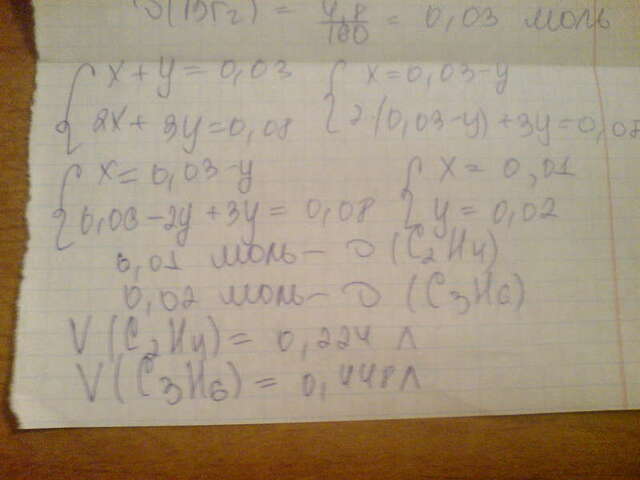 υ(Br₂) = 4,8/160 = 0,03 моль
{ x + y = 0,03 { x = 0,03 - y
{ 2x + 3y = 0,08 { 2(0,03 - y) + 3y = 0,08
{ x = 0,03 - y { x = 0,01
{ 0,06 - 2y + 3y = 0,08 { y = 0,02
0,01 моль - υ (C₂H₄)
0,02 моль - υ (C₃H₆)
V (C₂H₄) = 0,224 л
V (C₃H₆) = 0,448 л